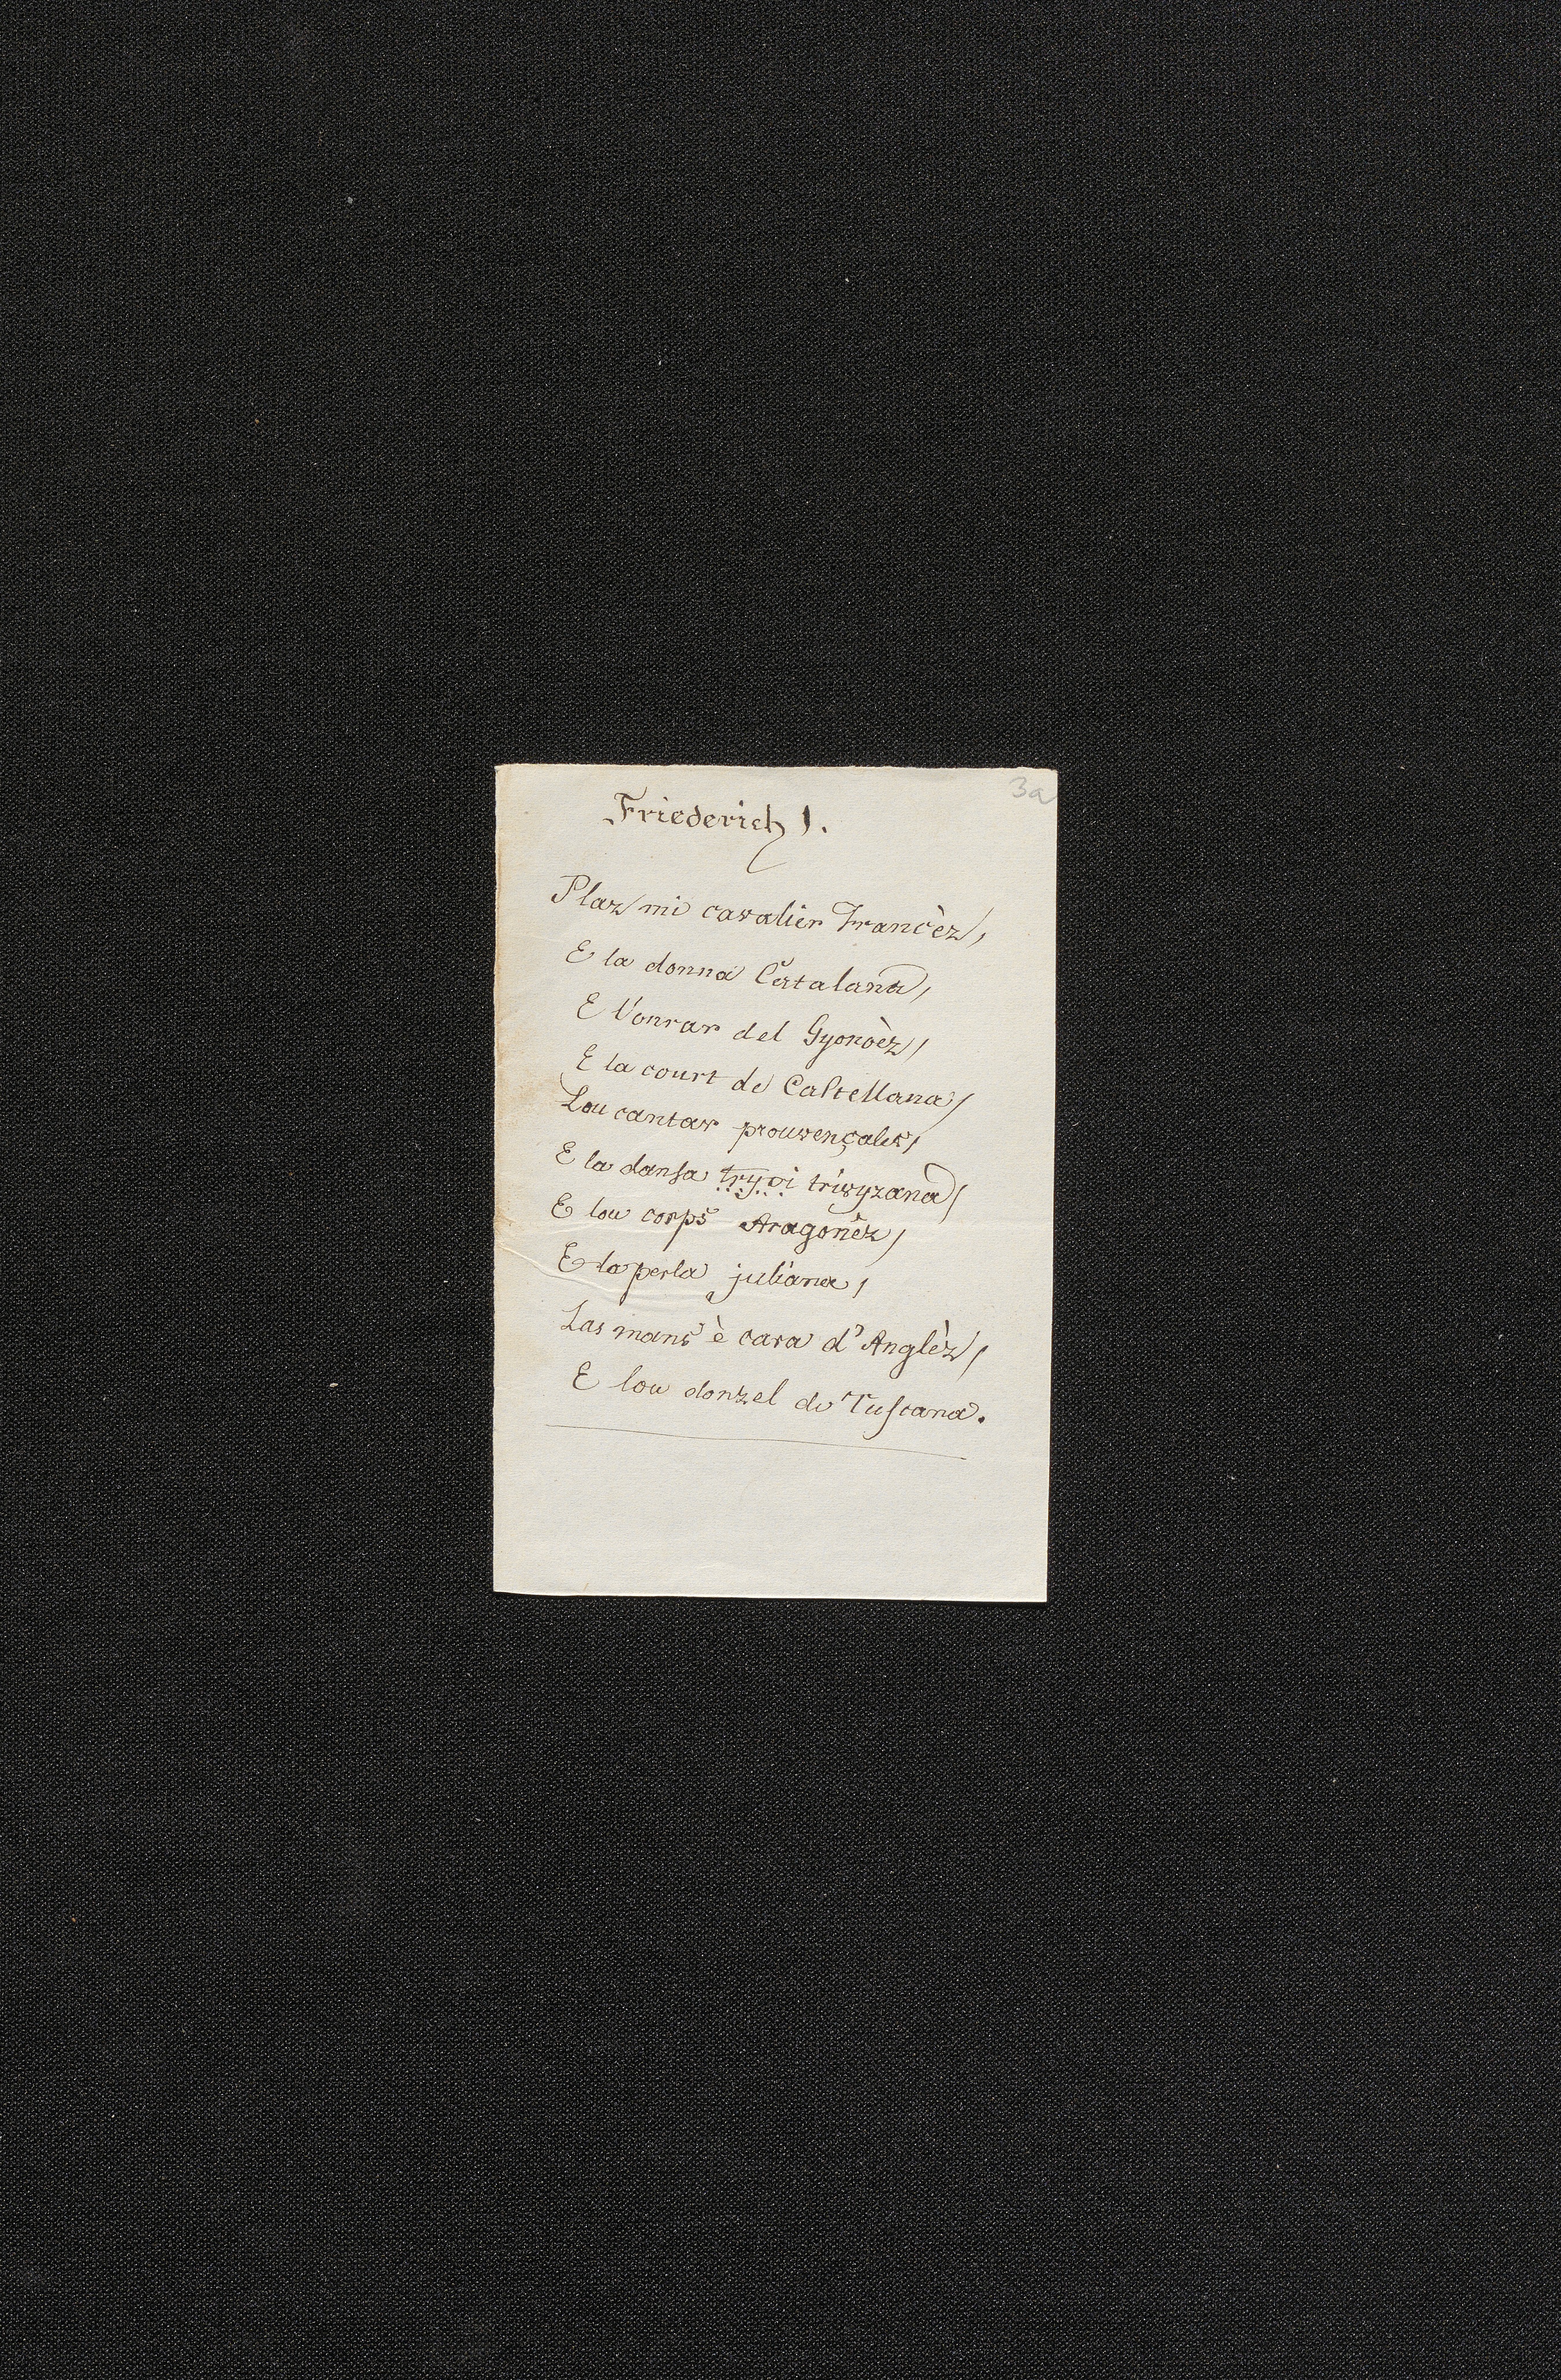 3a
Friederich I.
Plaz mi cavalier Francèz,
E la donna Catalana,
E l'onrar del Gynoèz,
E la court de Castellana,
Lou cantar prouvençalez,
E la dansa tryvi trivyzana,
E lou corps Aragonèz,
E la perla juliana,
Las mans è cara d'Anglèz,
E lou donzel de Tuscana.